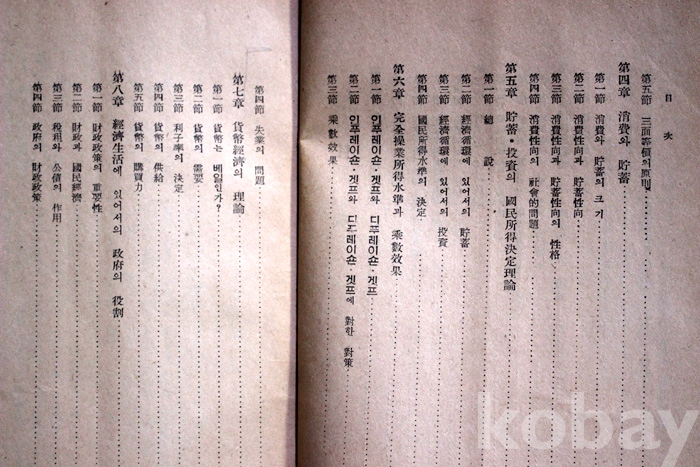 目次
第五節 三面等價의 原則
第四章 消費와 貯蓄
第一節 消費와 貯蓄의 크기
第二節 消費性向과 貯蓄性向
第三節 消費性向과 貯蓄性向의 性格
第四節 消費性向의 社會的問題
第五章 貯蓄·投資의 國民所得決定理論
第一節 總說
第二節 經濟循環에 있어서의 貯蓄
第三節 經濟循環에 있어서의 投資
第四節 國民所得水準의 決定
第六章 完全操業所得水準과 乘數效果
第一節 인푸레이숀·겟프와 디푸레이숀·겟프
第二節 인푸레이숀·겟프와 디푸레이숀·겟프에 對한 對策
第三節 乘數效果
第四節 失業의 問題
第七章 貨幣經濟의 理論
第一節 貨幣는 베일인가?
第二節 貨幣의 需要
第三節 利子率의 決定
第四節 貨幣의 供給
第五節 貨幣의 購買力
第八章 經濟生活에 있어서의 政府의 役割
第一節 財政政策의 重要性
第二節 財政과 國民經濟
第三節 稅租와 公債의 作用
第四節 政府의 財政政策
kobay